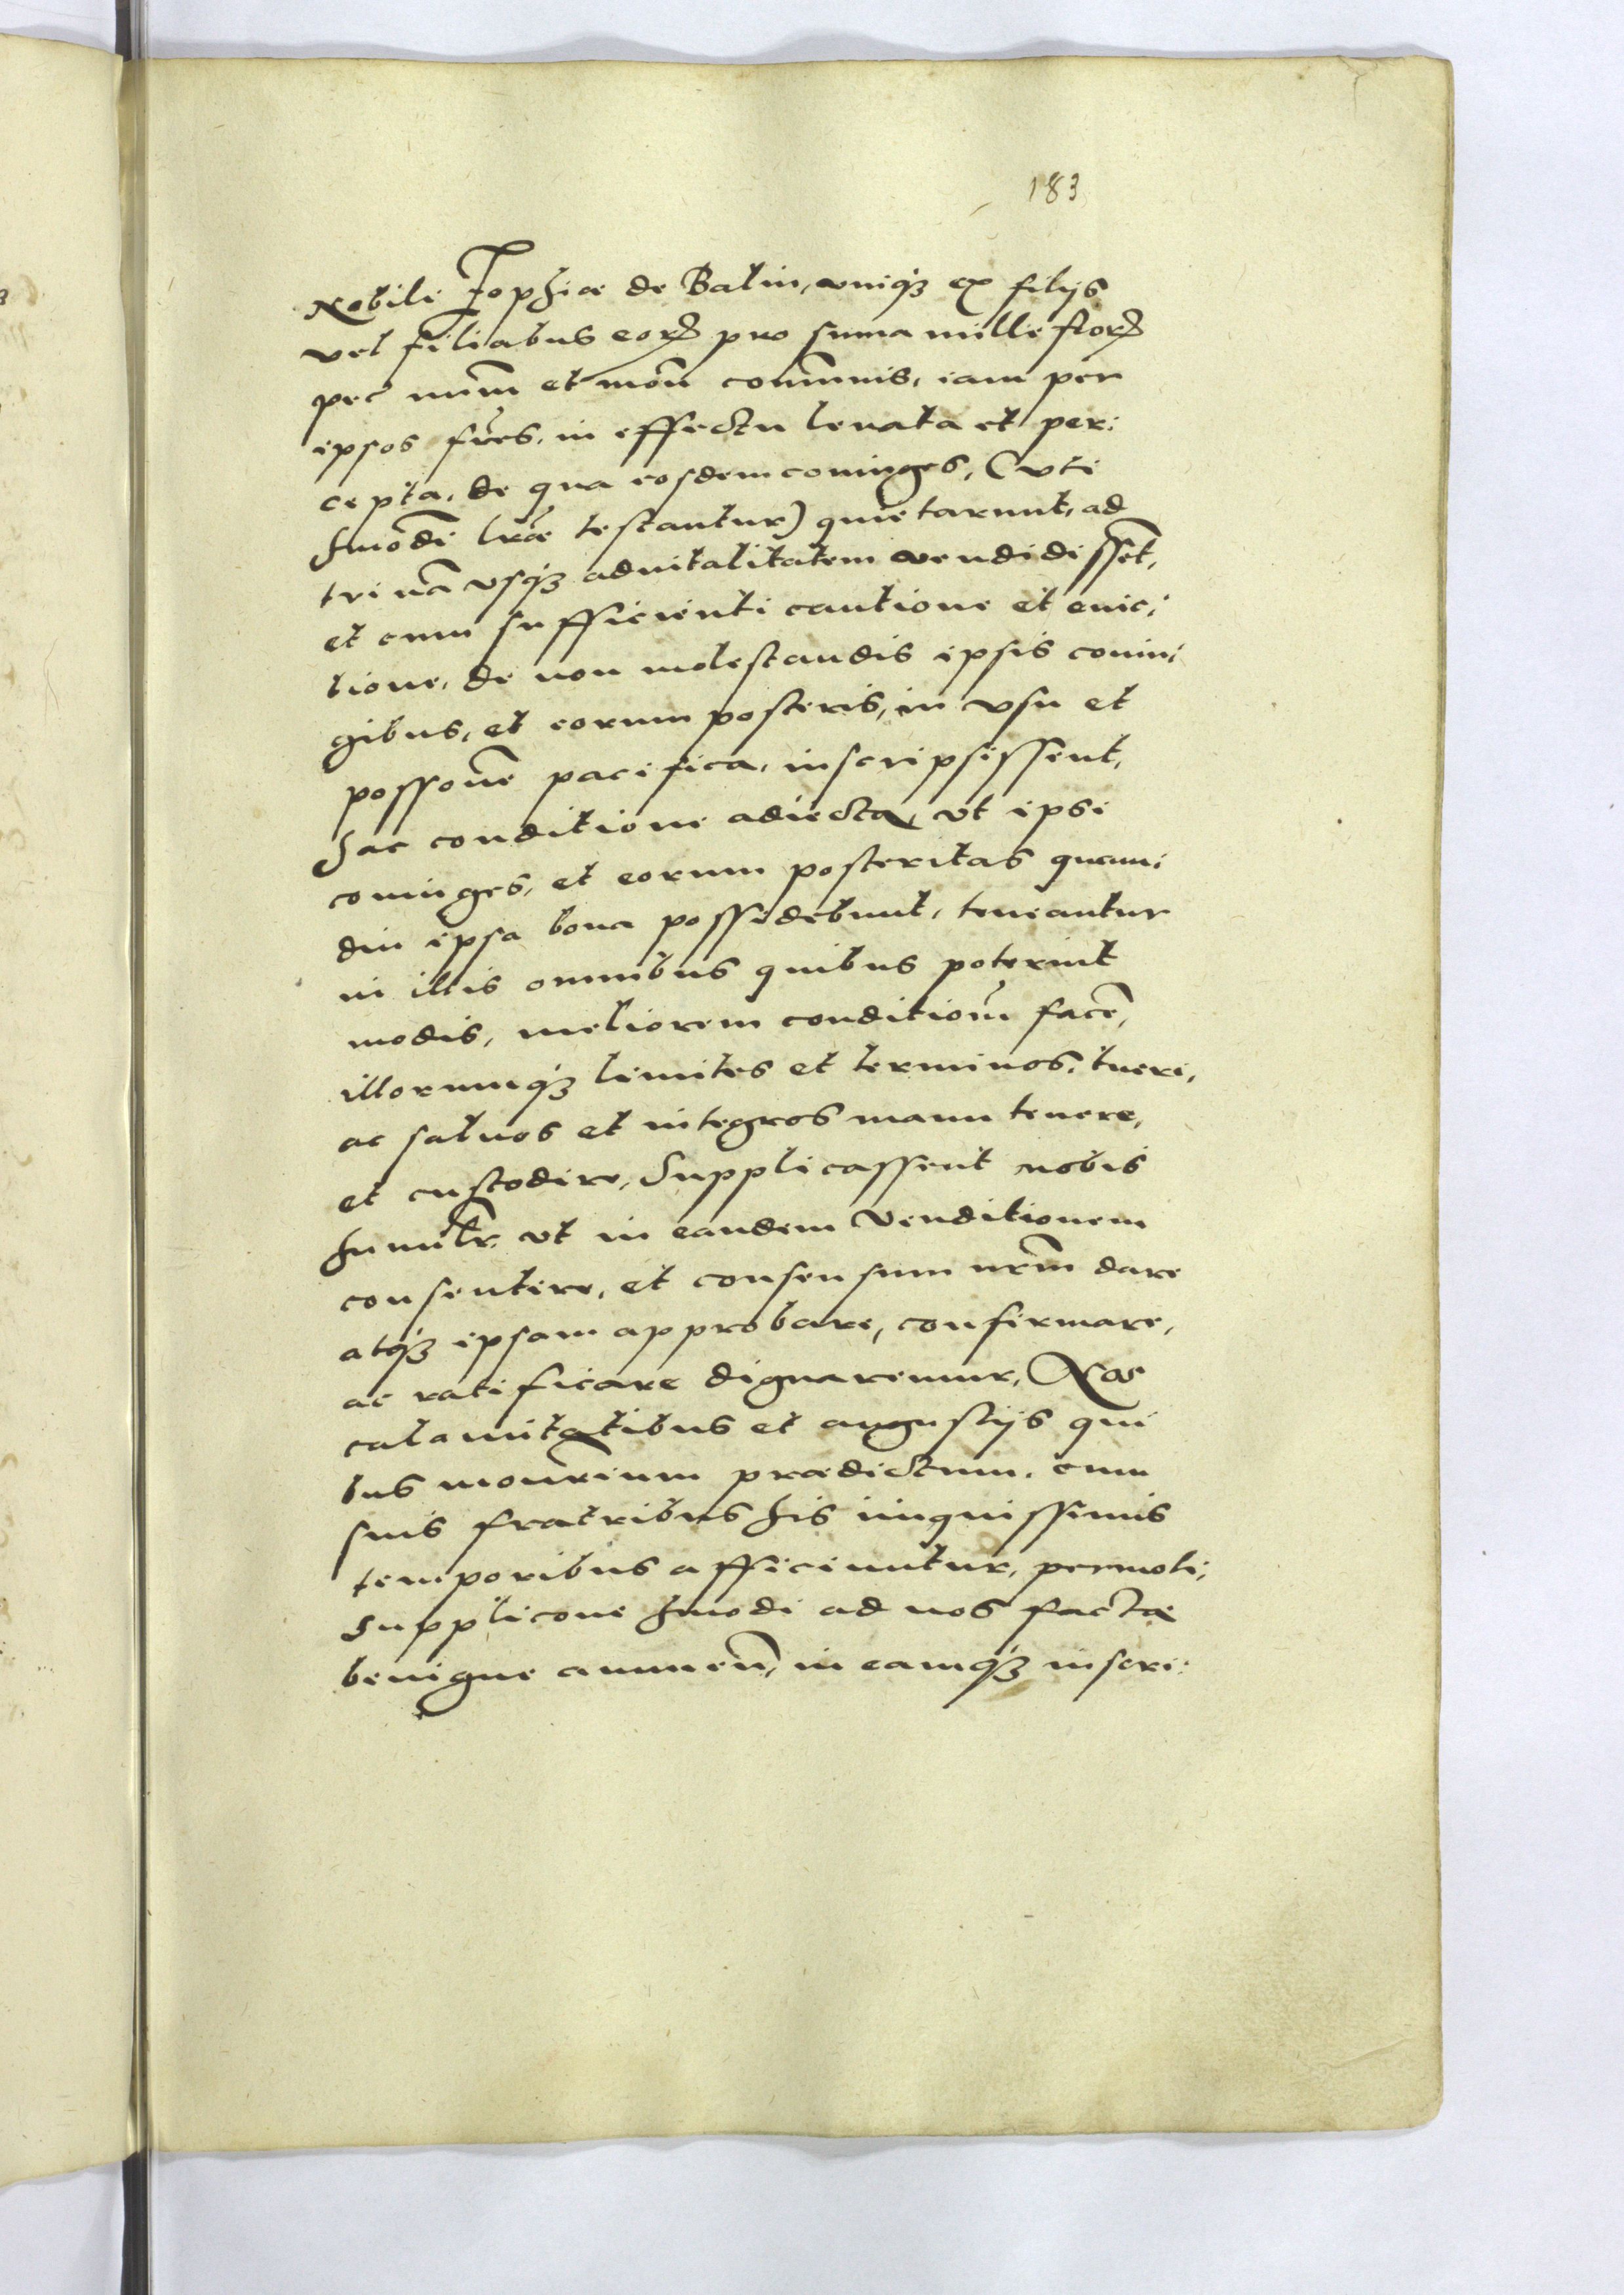 183
Nobili Sophiæ de Balin, vniq3 ex filijs
vel filiabus eorꝝ pro suma mille florꝝ
pec num̄ et mon̄ com̄unis, iam per
ipsos fr̄es, in effectu leuata et per:
cepta, de qua eosdem coniuges, (vti
hmōdi lræ testantur) quietarunt, ad
trinā vsq3 aduitalitatem vendidisset,
et cum sufficienti cautione et euic:
tione, de non molestandis ipsis coniu:
gibus, et eorum posteris, in vsu et
possone pacifica, inscripsissent,
hac conditione adiecta, vt ipsi
coniuges, et eorum posteritas quam:
diu ipsa bona possidebunt, teneantur
in illis omnibus quibus poterint
modis, meliorem conditionē facē,
illorumq3 limites et terminos, tueri,
ac saluos et integros manu tenere,
et custodire, Supplicassent nobis
humilr̄ vt in eandem venditionem
consentire, et consensum nr̄m dare
atq3 ipsam approbare, confirmare,
ac ratificare dignaremur, Nos
calamitatibus et angustijs qui
bus monrium prædictum, cum
suis fratribus his iniquissimis
temporibus afficiuntur, permoti,
Supplicone hmodi ad nos facta
benigne annuen̄, in eamq3 inscri: